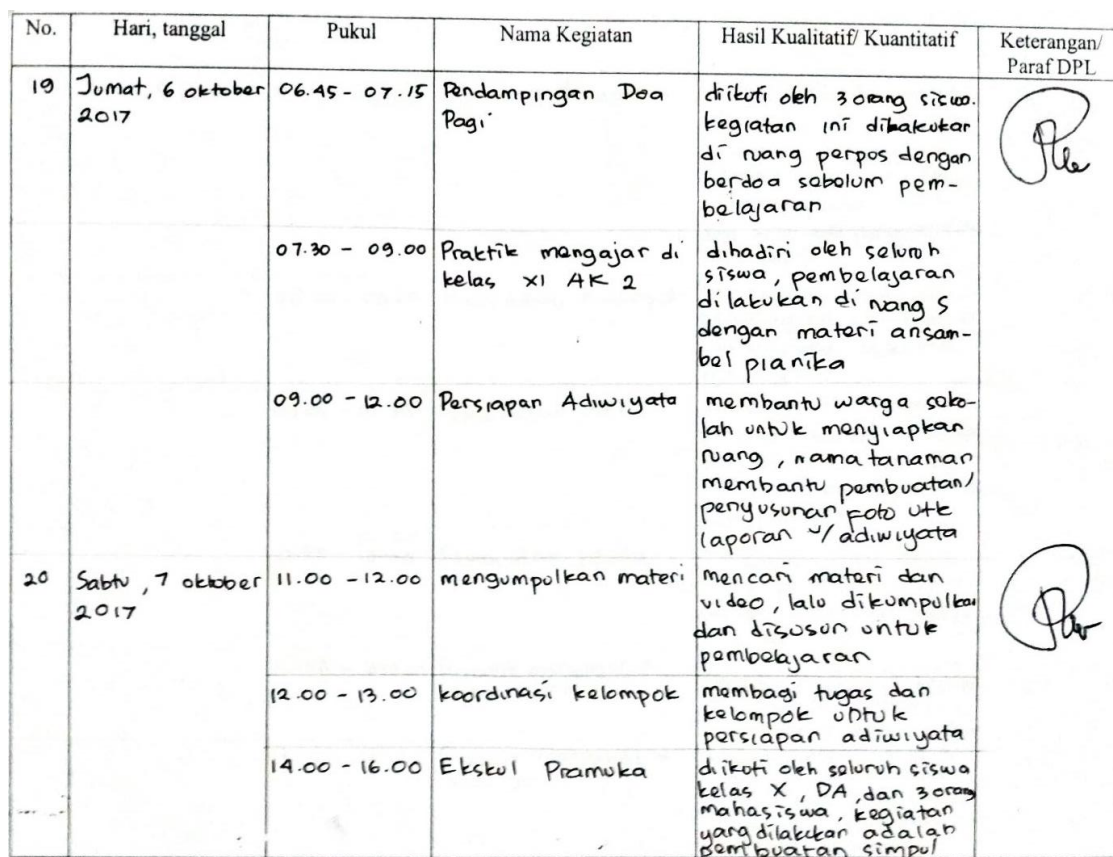 No. Hari, tanggal Pukul Nama Kegiatan Hasil Kualitatif/ Kuantitatif Keterangan/
Paraf DPL
19 Jumat, 6 oktober 06.45 - 07.15 Pendampingan Doa diikuti oleh 3 orang siswa.
2017 Pagi kegiatan ini dilakukan
di ruang perpus dengan
berdoa sebelum pem-
belajaran
07.30 - 09.00 Praktik mengajar di dihadiri oleh seluruh
kelas XI AK 2 siswa, pembelajaran
dilakukan di ruang 5
dengan materi ansam-
bel pianika
09.00 - 12.00 Persiapan Adiwiyata membantu warga seko-
lah untuk menyiapkan
ruang, nama tanaman
membantu pembuatan/
penyusunan foto utk
laporan u/ adiwiyata
20 Sabtu, 7 oktober 11.00 - 12.00 mengumpulkan materi mencari materi dan
2017 video, lalu dikumpulkan
dan disusun untuk
pembelajaran
12.00 - 13.00 koordinasi kelompok membagi tugas dan
kelompok untuk
persiapan adiwiyata
14.00 - 16.00 Ekskul Pramuka diikuti oleh seluruh siswa
kelas X, DA, dan 3 orang
mahasiswa, kegiatan
yang dilakukan adalah
pembuatan simpul